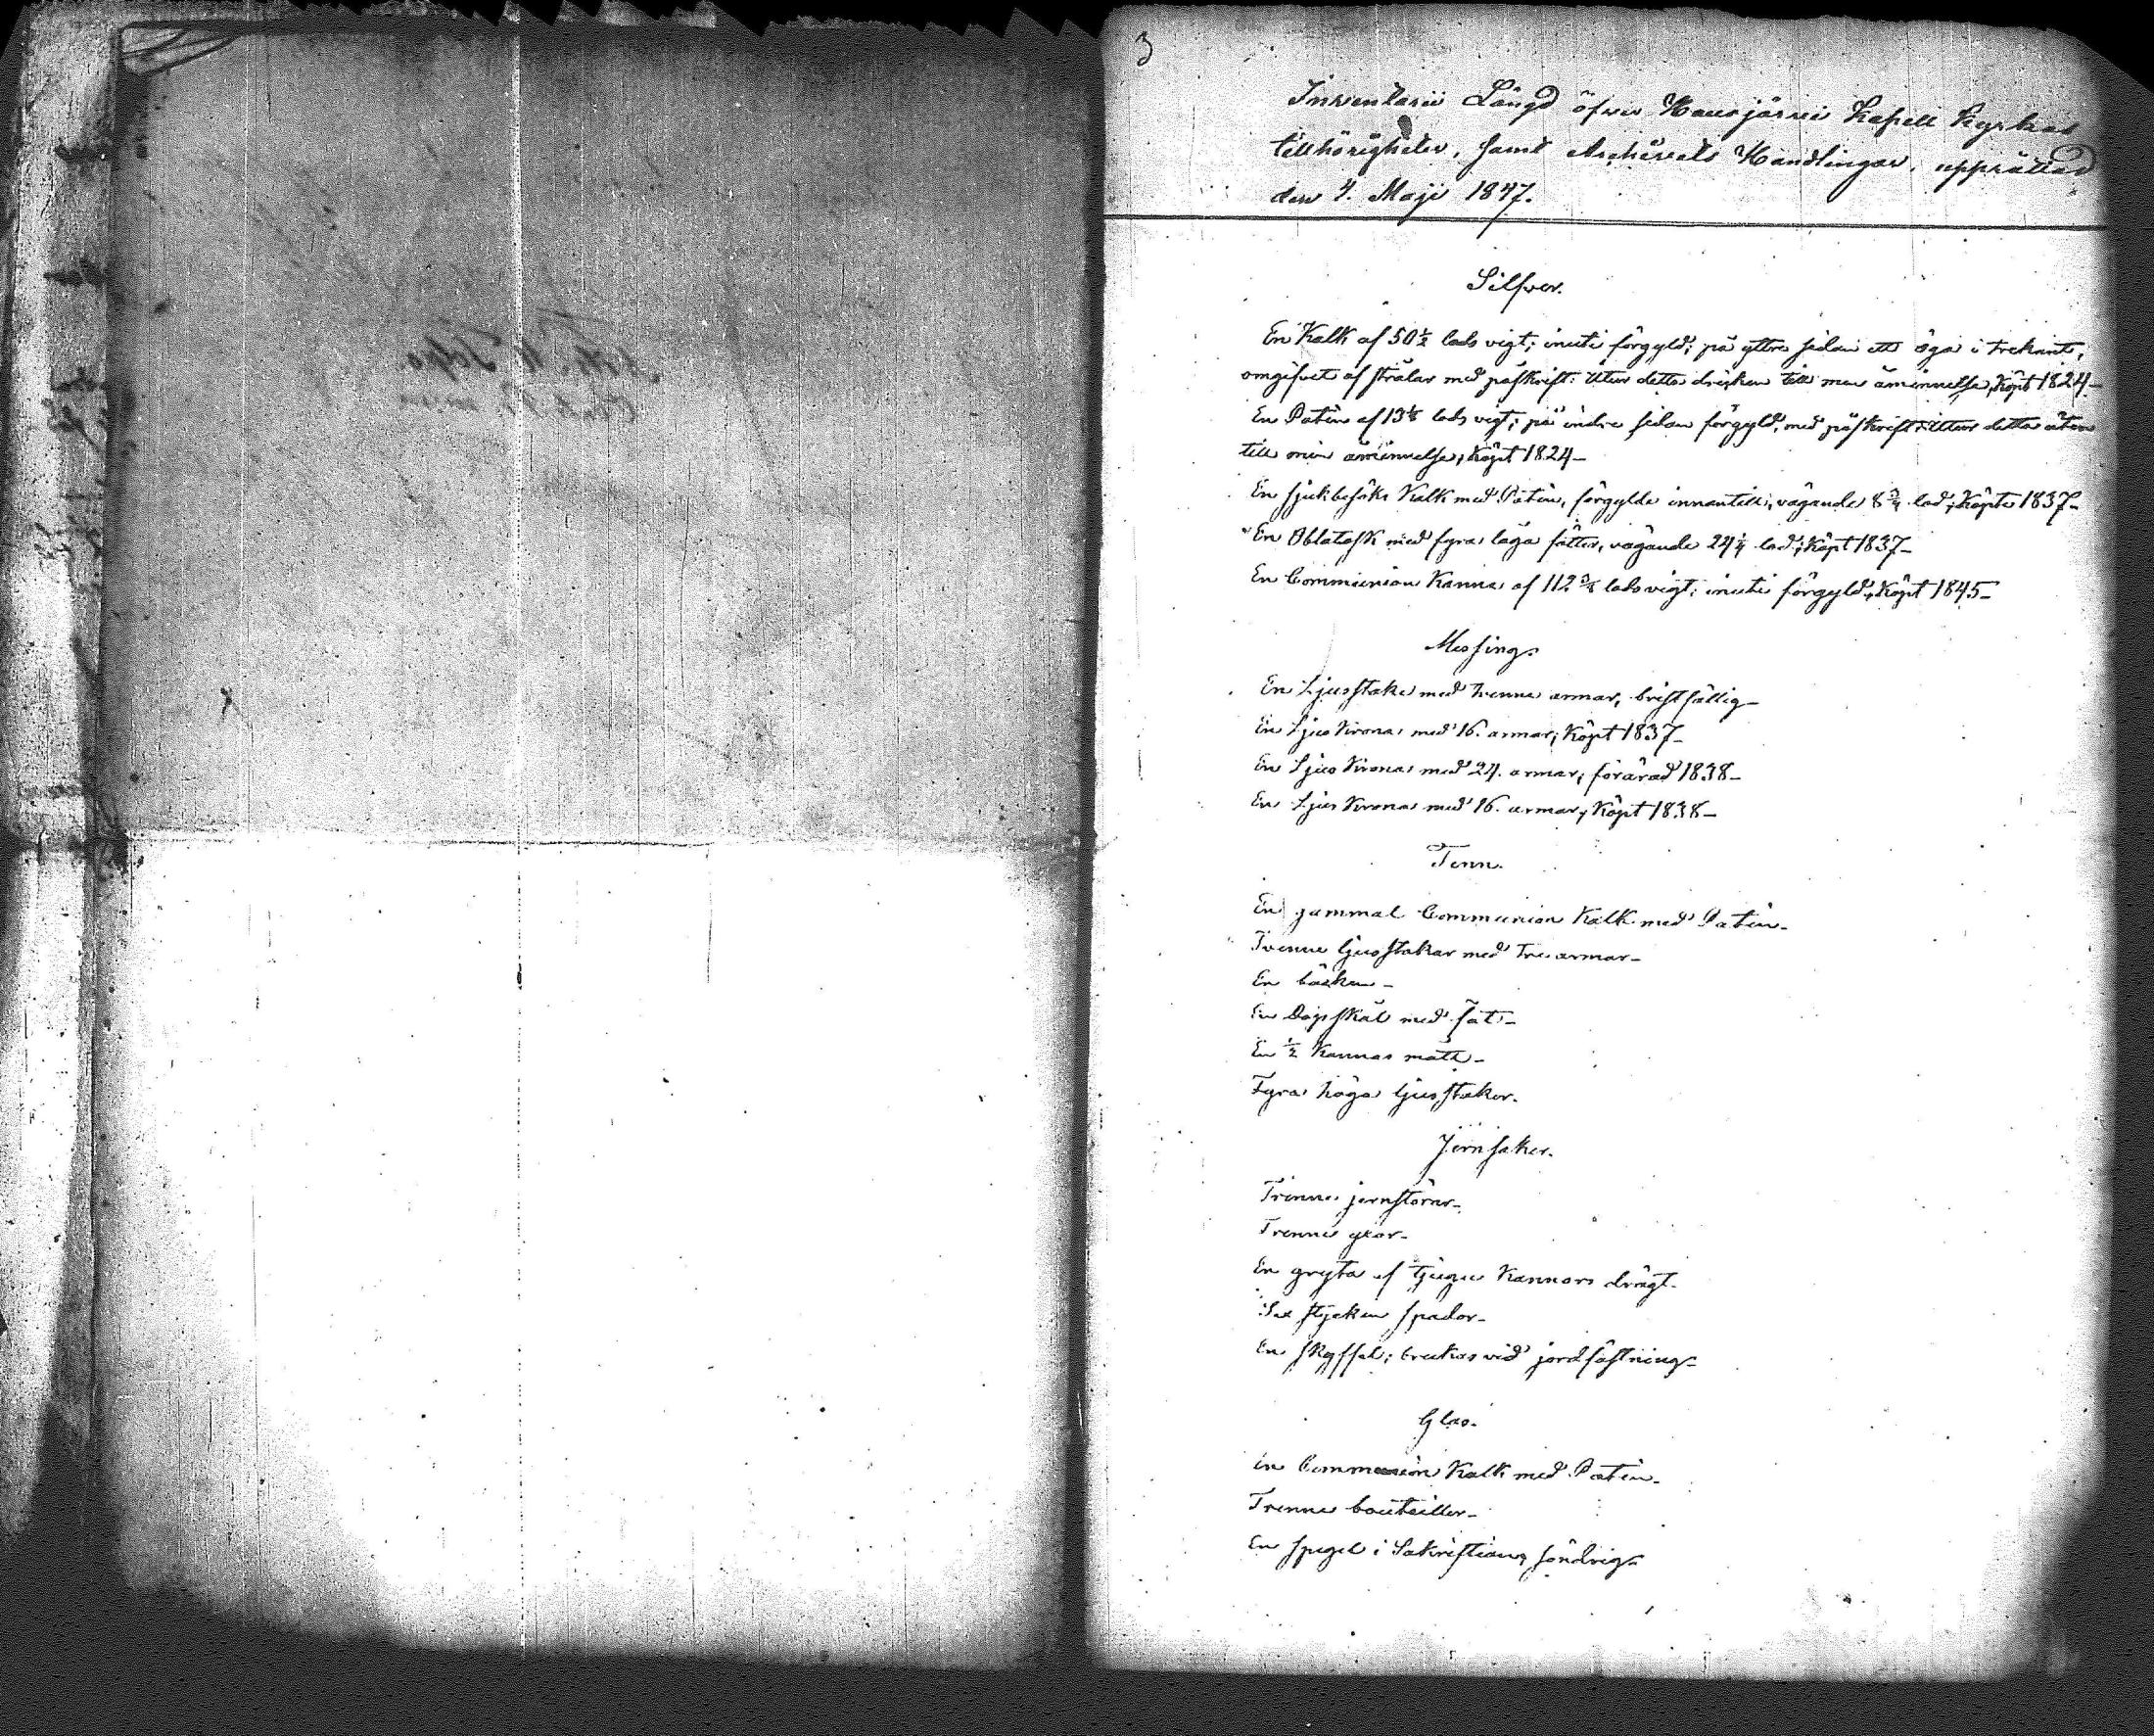 3
Inventarii Längd öfver Hausjärvi Kapell Kyrkas
tillhörigheter, samt Archivets Handlingar, upprättad
den 4. Maji 1847.
Silfver.
En Kalk af 50 1/2 lods vigt; inuti förgyld; på yttre sidan ett öga i trekant,
omgifvet af strålar med påskrift: Utur detta dricken till min åminnelse, Köpt 1824-
En Patèn af 13 1/8 lods vigt; på indre sidan förgyld, med påskrift: Utur detta äten
till min åminnelse, Köpt 1824-
En sjukbesöks Kalk med Patèn, förgylde innantill, vägande 8 3/4 lod; Köpte 1837-
En Oblatask med fyra låga fötter, vägande 24 1/4 lod; Köpt 1837-
En Communion Kanna af 112 3/8 lods vigt; inuti förgyld, Köpt 1845-
Messing.
En Ljusstake med tvenne armar, bristfällig-
En Ljus Krona med 16. armar; Köpt 1837-
En Ljus Krona med 24. armar; förärad 1838-
En Ljus Krona med 16. armar, Köpt 1838-
Tenn.
En gammal Communion Kalk med Patèn.
Tvenne ljusstakar med tre armar-
En bäcken-
En Dopskål med fat-
En 1/2 Kannas mått-
Fyra höga ljusstakar.
Jernsaker.
Trenne jernstörar-
Trenne yxor-
En gryta af tjugu Kannors drägt.
Sex stycken spador-
En skyffel; brukas vid jordfästning-
Glas.
En Communion Kalk med Patèn.
Trenne bouteiller-
En spegel i Sakristian, söndrig-